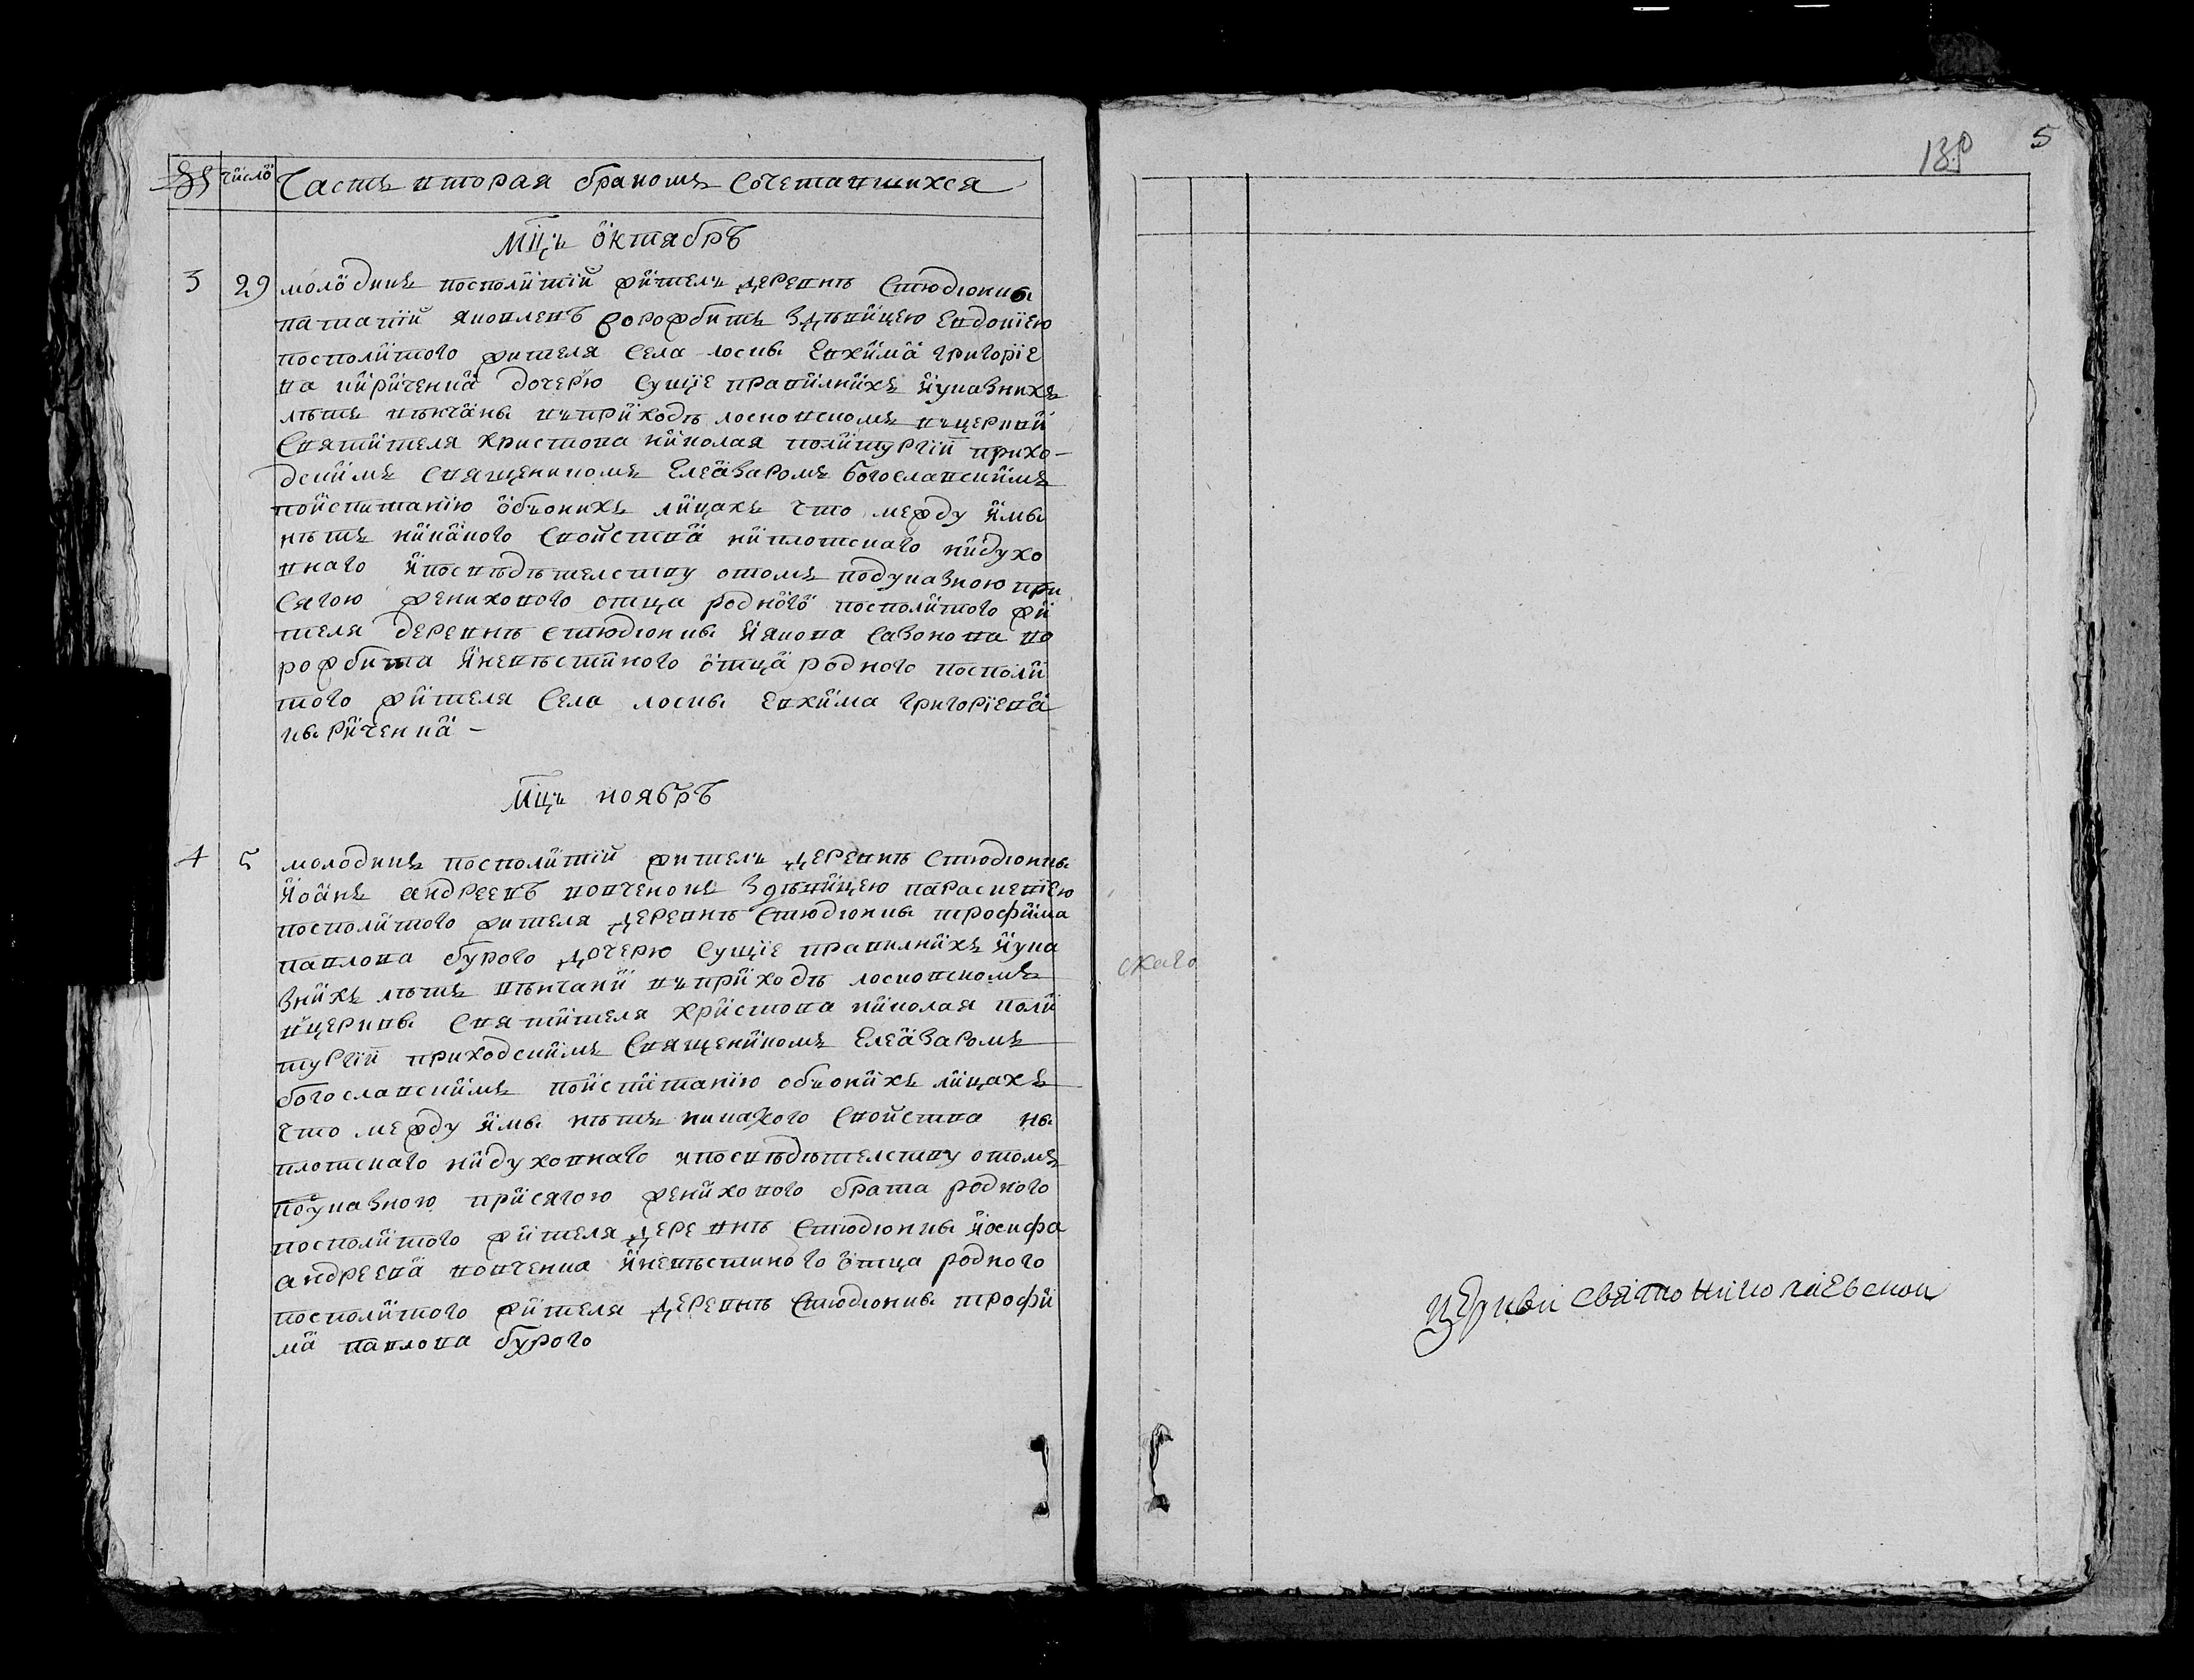 число Часть вторая бракомъ сочетавшихся
Мцъ октябрь
3 29 молодикъ посполитїй житель деревнѣ Стюдюнки
игнатїй яковлевъ ворожбитъ здѣвицею евдокїею
посполитого жителя села лоски евхима григорїе
ва кириченка дочерю сущїе правилнихъ иуказнихъ
лѣтъ вѣнчаны въприходѣ лосковскомъ въцеркви
святителя христова николая политургїи прихо-
дскимъ священикомъ елеазаромъ богославскимъ
поиспитанїю обьонихъ лицахъ что между ими
нѣтъ никакого свойства ниплотскаго нидухо
внаго ипосвѣдѣтелству отомъ подуказною при
сягою женихового отца родного посполитого жи
теля деревнѣ стюдюнки якова сазонова во
рожбита иневѣстиного отца родного посполи
того жителя села лоски евхима григорїева
кириченка –
Мцъ ноябрь
4 5 молодикъ посполитїй житель деревнѣ стюдюнки
иоанъ андреевъ вовченокъ здѣвицею параскевїею
посполитого жителя деревнѣ стюдюнки трофима
павлова бурого дочерю сущїе правилнихъ иука
знихъ лѣтъ вѣнчани въприходѣ лосковскомъ
вцеркви святителя христова николая поли
тургїи приходскимъ священикомъ елеазаромъ
богославскимъ поиспитанїю обьонихъ лицахъ
что между ими нѣтъ никакого свойства ни
плотскаго нидуховнаго ипосвѣдѣтелству отомъ
поуказною присягою женихового брата родного
посполитого жителя деревнѣ стюдюнки иосифа
андреева вовченка иневѣстиного отца родного
посполитого жителя деревнѣ стюдюнки трофи
ма павлова бурого
5
скаго
церкви святониколаевской